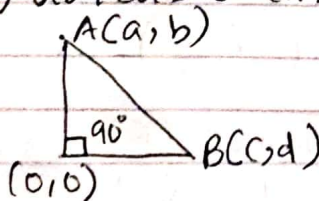 A(a, b)
90°
B(c, d)
(0, 0)